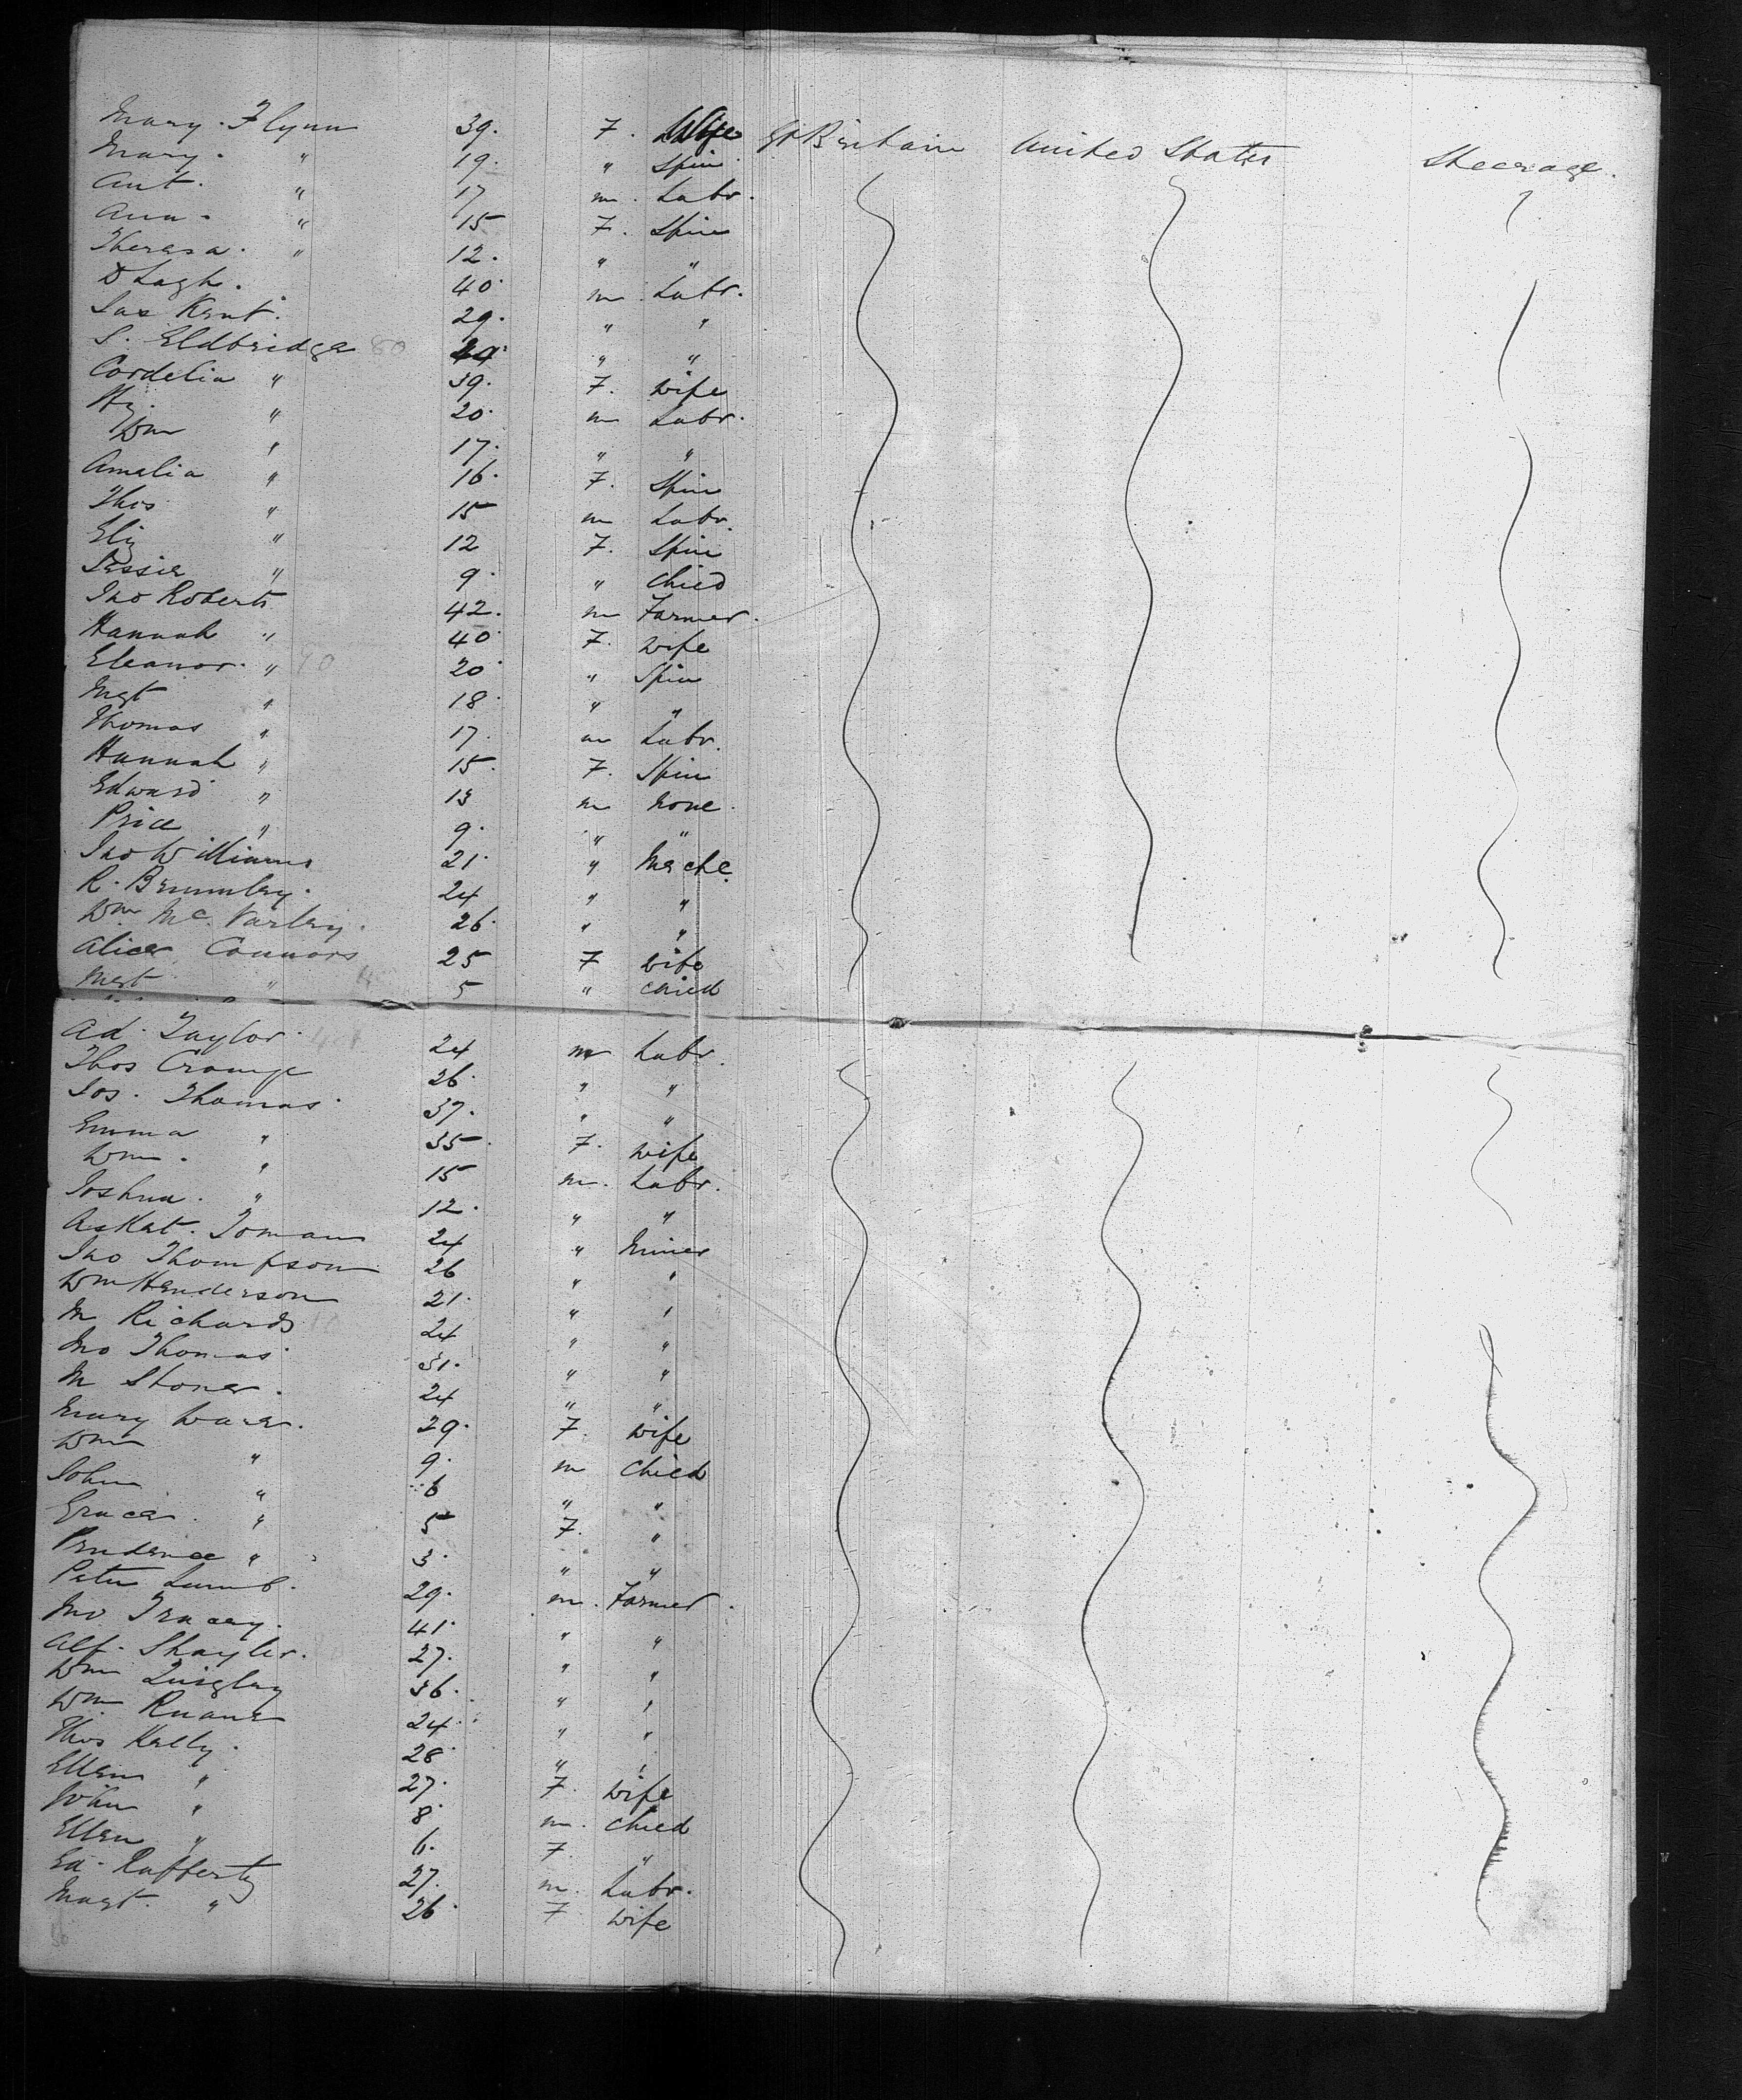 Mary Flynn 39. F. Wife Gt Britain United States Steerage.
Mary " 19. " Spin
Ant. " 17 m. Labr.
Ann. " 15 F. Spin
Theresa. " 12. " "
40. m Labr.
Jas Kent. 29. " "
S. Eldbridge 80 " "
Cordelia " 39. F. Wife
Hy. " 20. m Labr.
Wm " 17. " "
Amalia " 16. F. Spin
Thos " 15 m Labr.
Eliz " 12 F. Spin
Jessie " 9. " Child
Jno Roberts 42. m Farmer.
Hannah " 40 F. Wife
Eleanor. " 90 20 " Spin
Mgt " 18. " "
Thomas " 17. m Labr.
Hannah " 15. F. Spin
Edward " 13 m None.
Price " 9. " "
Jno Williams 21. " Mache.
R. Brumley. 24 " "
Wm Mc Varley. 26. " "
Alice Connors 25 F Wife
Mgt " 5 " Child
Ad. Taylor. 24 m Labr.
Thos 26. " "
Jos. Thomas. 37. " "
Emma " 35. F. Wife
Wm. " 15 m. Labr.
Joshua. " 12. " "
24 " Miner
Jno Thompson 26 " "
Wm Henderson 21. " "
M Richards 24 " "
Jno Thomas 31. " "
M Stoner. 24 " "
Mary Ware. 29. F. Wife
Wm " 9. m Child
John " 6 " "
Grace. " 5 F. "
Prudence " 3. " "
Peter Lumb. 29. m. Farmer.
Jno Tracey. 41. " "
Alf. Shayler. 27. " "
Wm Quigley 36. " "
Wm Ruane 24. " "
Thos Kelly. 28. " "
Ellen " 27. F. Wife
John " 8. m. Child
Ellen " 6. F. "
Ed. Rafferty 27. m. Labr.
Margt. " 26. F. Wife